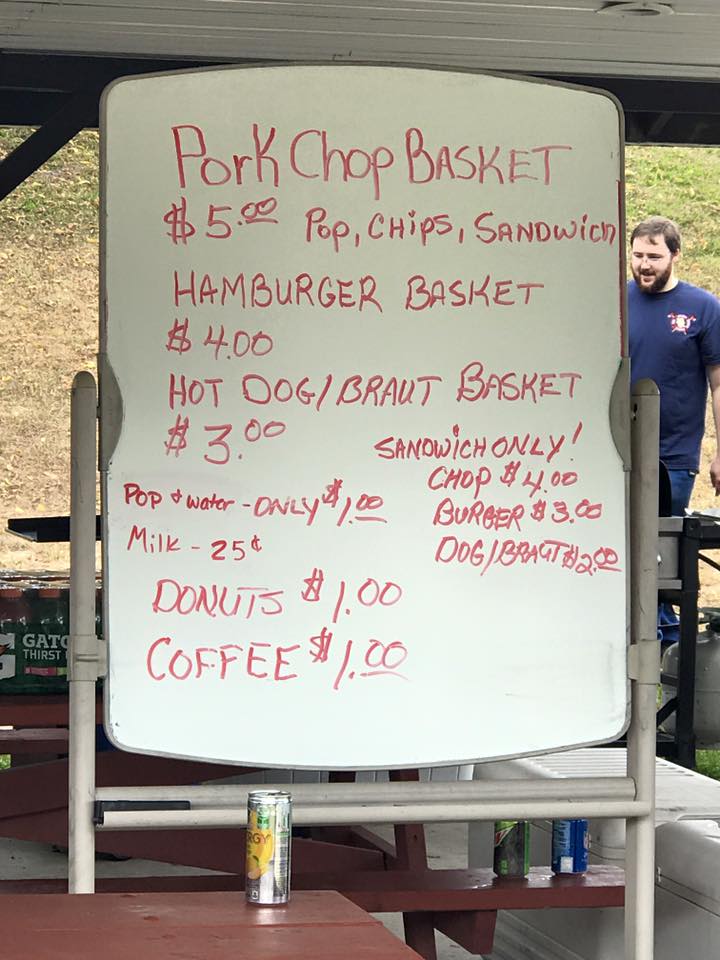 Pork Chop BASKET
$5.00 Pop, CHiPS, SANDWicH
HAMBURGER BASKET
$4.00
HOT DOG/BRAUT BASKET
$3.00
SANDWICH ONLY!
CHOP $4.00
BURGER $3.00
DOG/BRAUT $2.00
Pop & water - ONLY $1.00
Milk - 25¢
DONUTS $1.00
COFFEE $1.00
GATO
THIRST
RGY